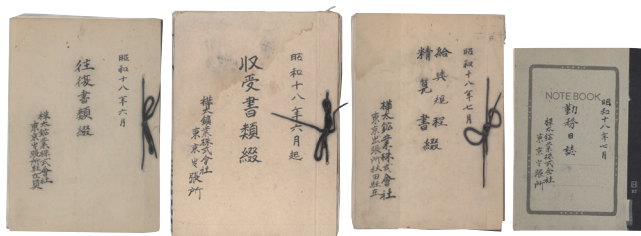 昭和十八年六月
往復書類綴
樺太鉱業株式會社
東京出張所
昭和十八年六月起
収受書類綴
樺太鉱業株式會社
東京出張所
昭和十八年七月
給与規程
精算書綴
樺太鉱業株式會社
東京出張所
NOTE BOOK
昭和十八年七月
勤務日誌
樺太鉱業株式會社
東京出張所